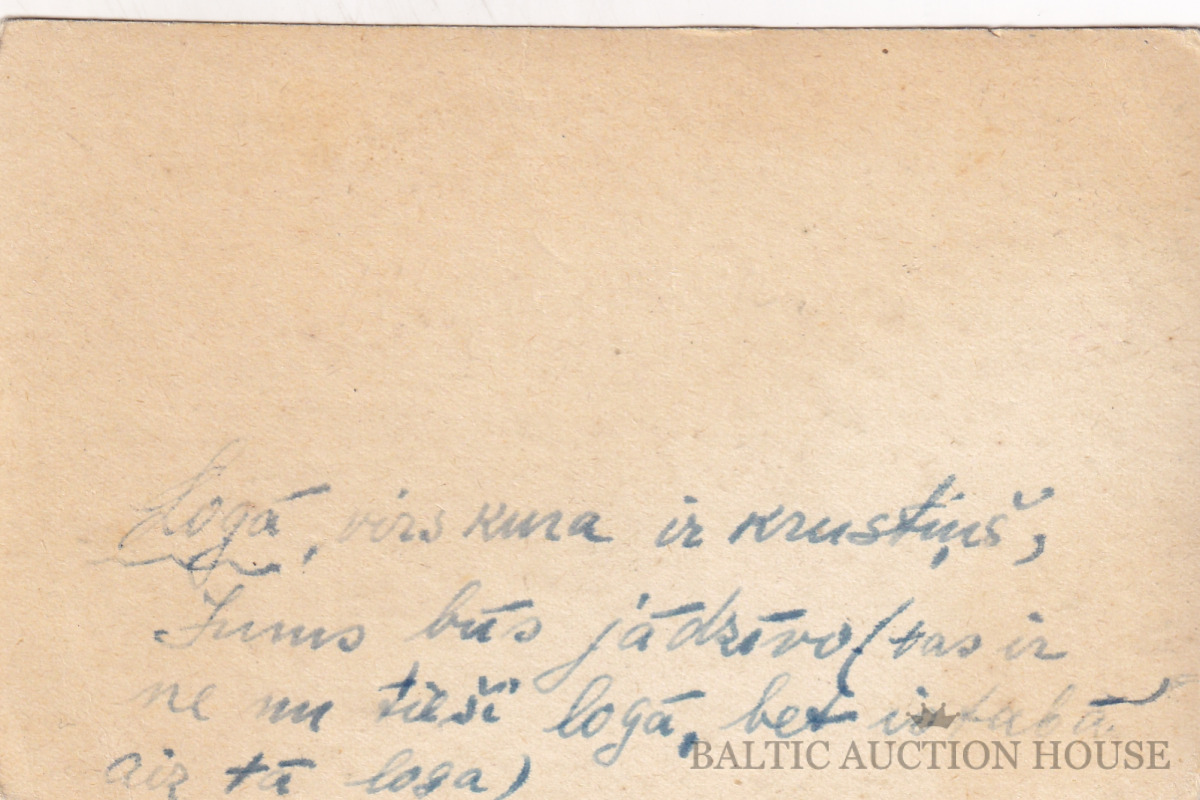 Logā, virs kura ir krustiņš,
Jums būs jādzīvo (tas ir
ne nu tieši logā, bet istabā
aiz tā loga)
BALTIC AUCTION HOUSE